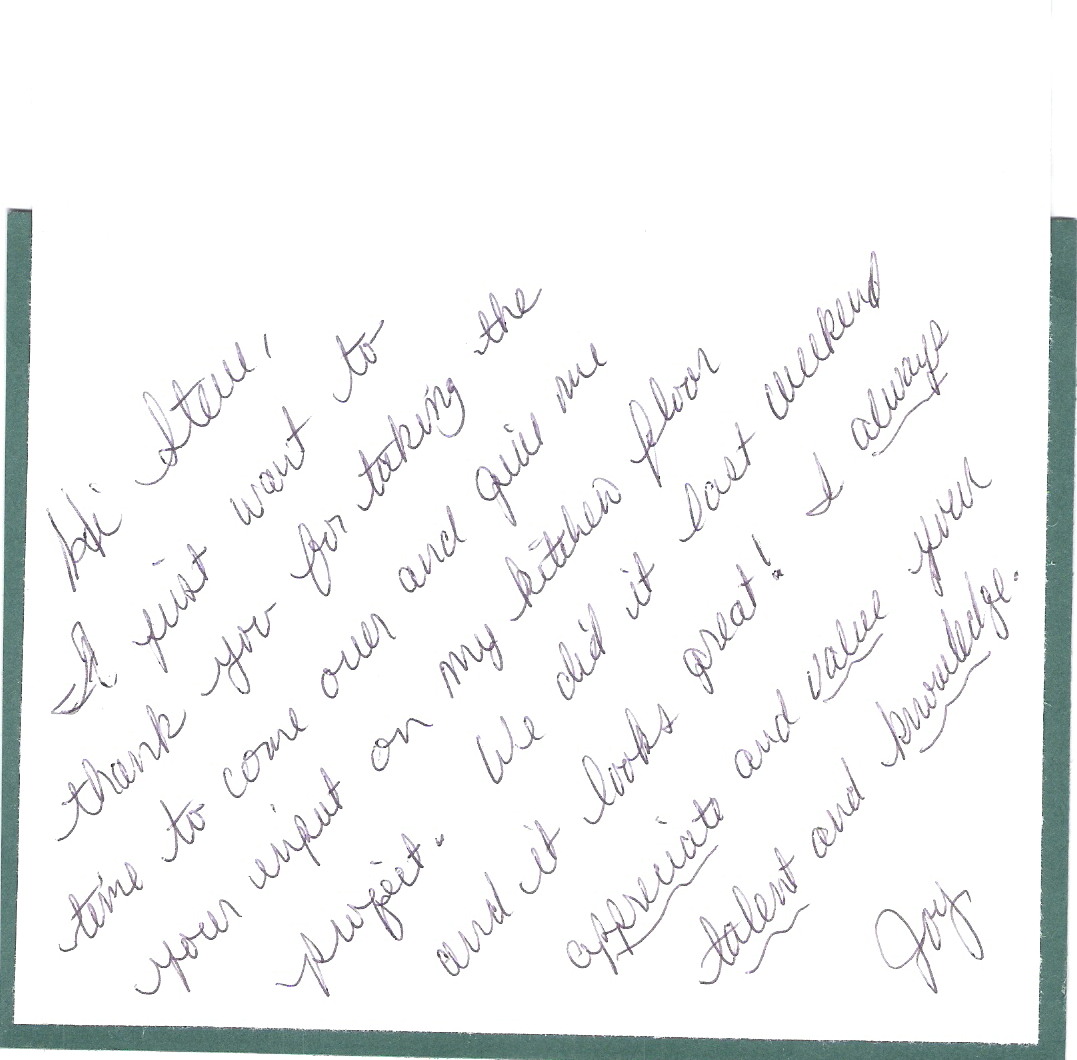 Hi Steve,
I just want to
thank you for taking the
time to come over and give me
your input on my kitchen floor
project. We did it last weekend
and it looks great! I always
appreciate and value your
talent and knowledge.
Joy